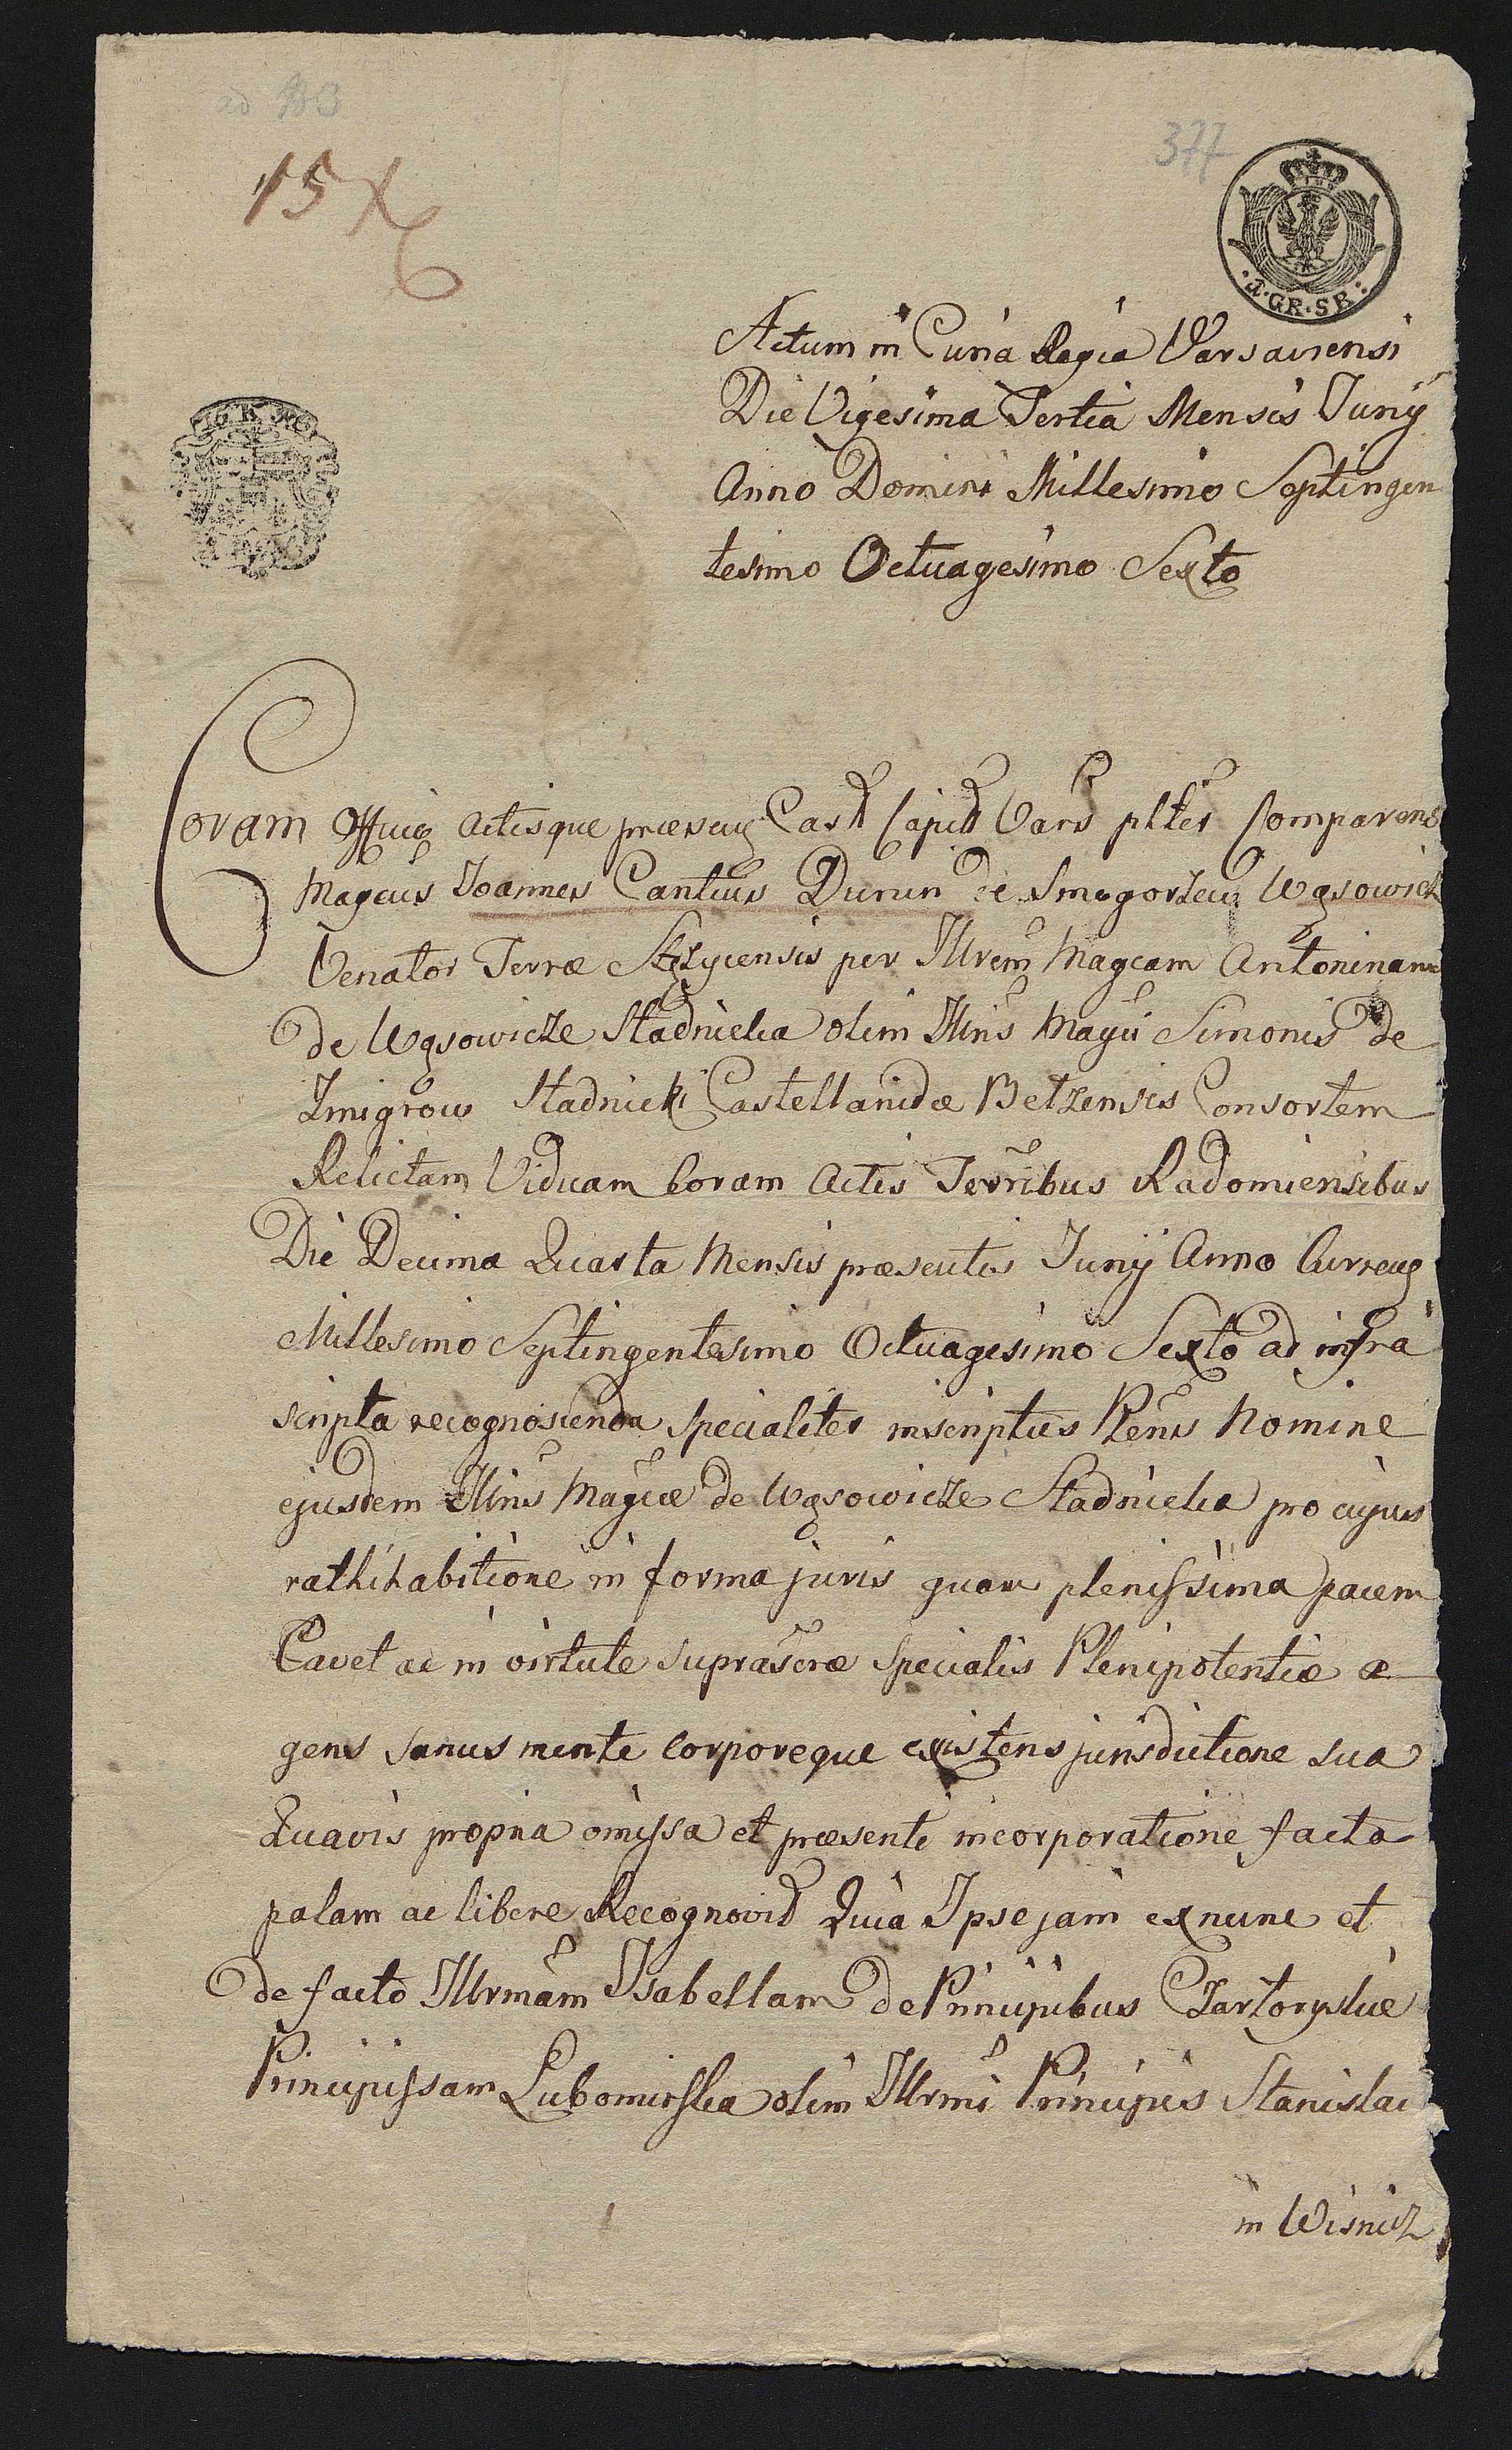 377
15 X
1·GR·SR·
Actum in Curia Regia Varsaviensi
Die Vigesima Tertia Mensis Junÿ
Anno Domini Millesimo Septingen
tesimo Octuagesimo Sexto
Coram Offici actisque præsen Cast Capit Vars pltēr Comparens
Magcus Joannes Cantius Dunin de Smogorzew Wąsowicz
Venator Terræ Stęzycensis per Illrem Magcam Antoninam
de Wąsowicze Stadnicka olim Illris Magci Simonis de
Zmigrow Stadnicki Castellanidæ Betzensis Consortem
Relictam Viduam Coram Actis Terribus Radomiensibus
Die Decima Quarta Mensis præsentis Junÿ Anno Curren
Millesimo Septingentesimo Octuagesimo Sexto ad infra
scripta recognoscenda specialiter inscriptus Plens Nomine
ejusdem Illris Magcæ de Wąsowicze Stadnicka pro cujus
rathihabitione in forma juris quam plenissima pacem
Cavet ac in virtute suprascræ specialis Plenipotentiæ a
gens sanus mente corporeque existens jurisdictione sua
Quavis propria omissa et præsenti incorporatione facta
palam ac libere Recognovit Quia Ipse jam exnunc et
de facto Illrmam Isabellam de Principibus Czartoryskie
Principissam Lubomirska olim Illrmi Principis Stanislai
in Wisnicz